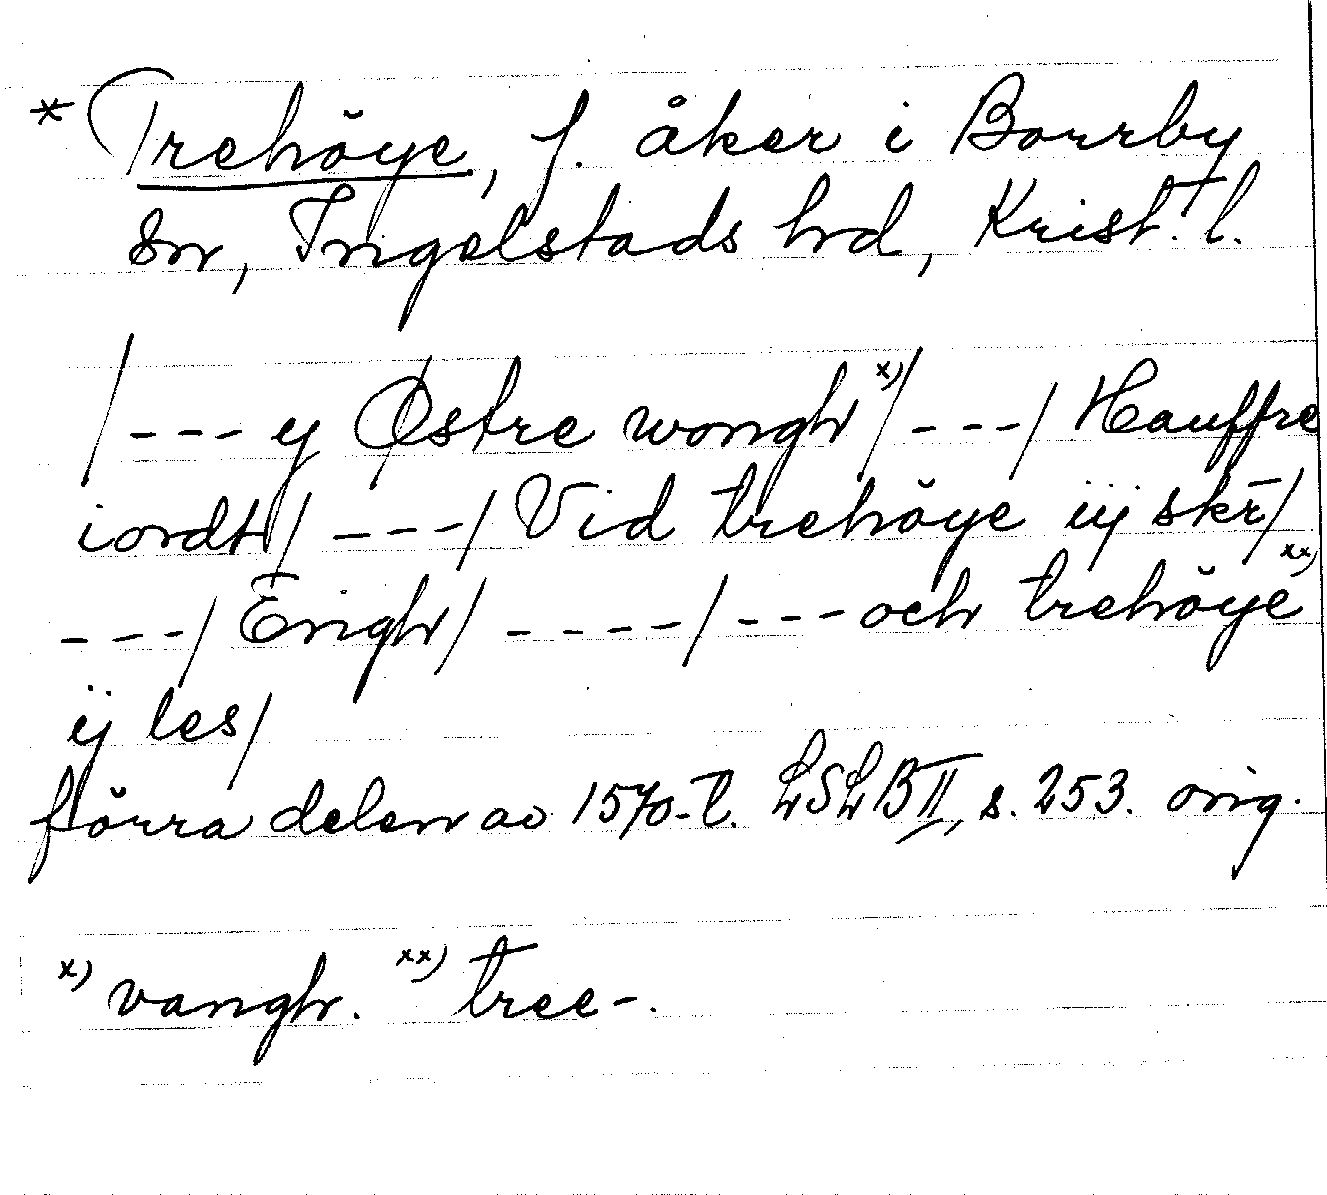 * Trehŏye, f. åker i Borrby
sn, Ingelstads hrd, Krist. l.
/--- y Østre wongh x)/---/ Hauffre
iordt/ ---/ Vid trehŏye iij skr̄/
---/ Erigh/ ----/ --- och trehŏye xx)
ij les/
förra delen av 1570-t. LSLB II, s. 253. orig.
x) vangh. xx) tree-.